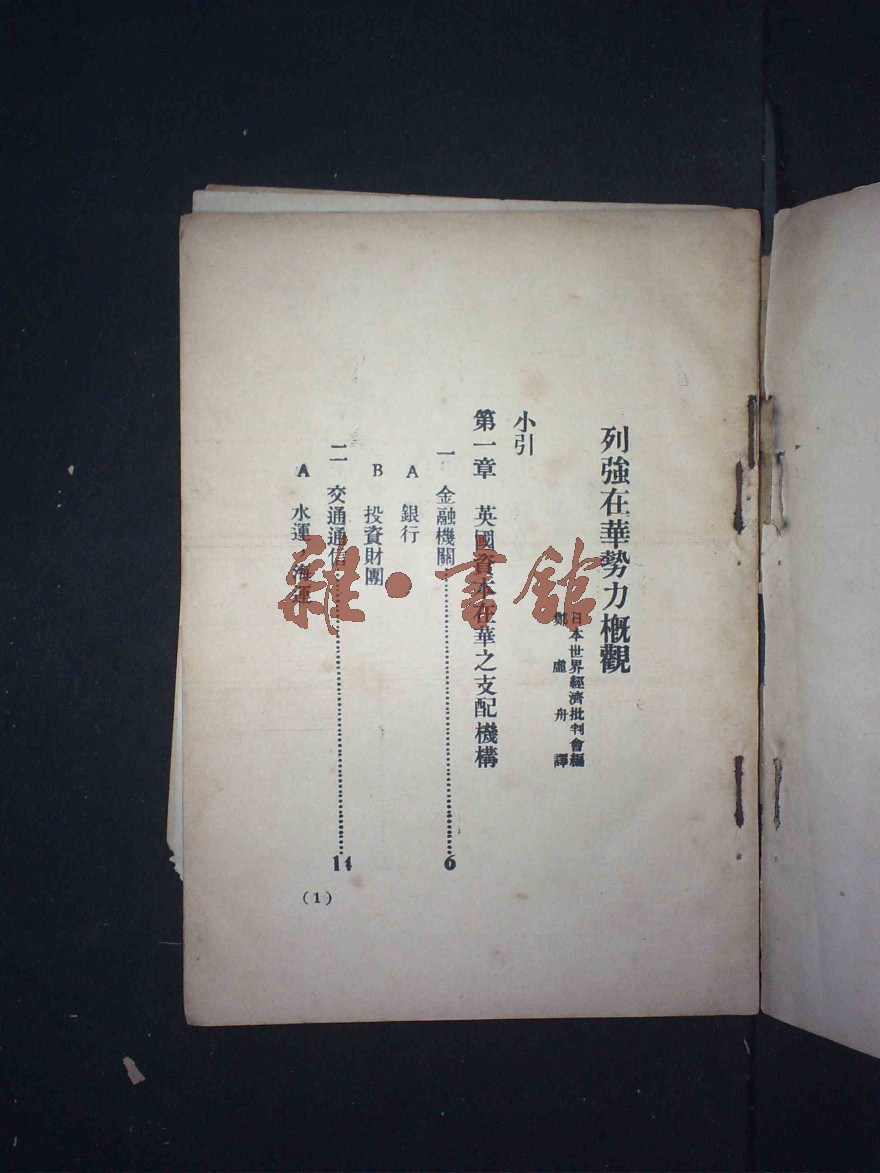 列強在華勢力槪觀
日本世界經濟批判會編
鄭虛舟譯
小引
第一章 英國資本在華之支配機構
一 金融機關……6
A 銀行
B 投資財團
二 交通通信……14
A 水運,海運
(1)
雜·書館